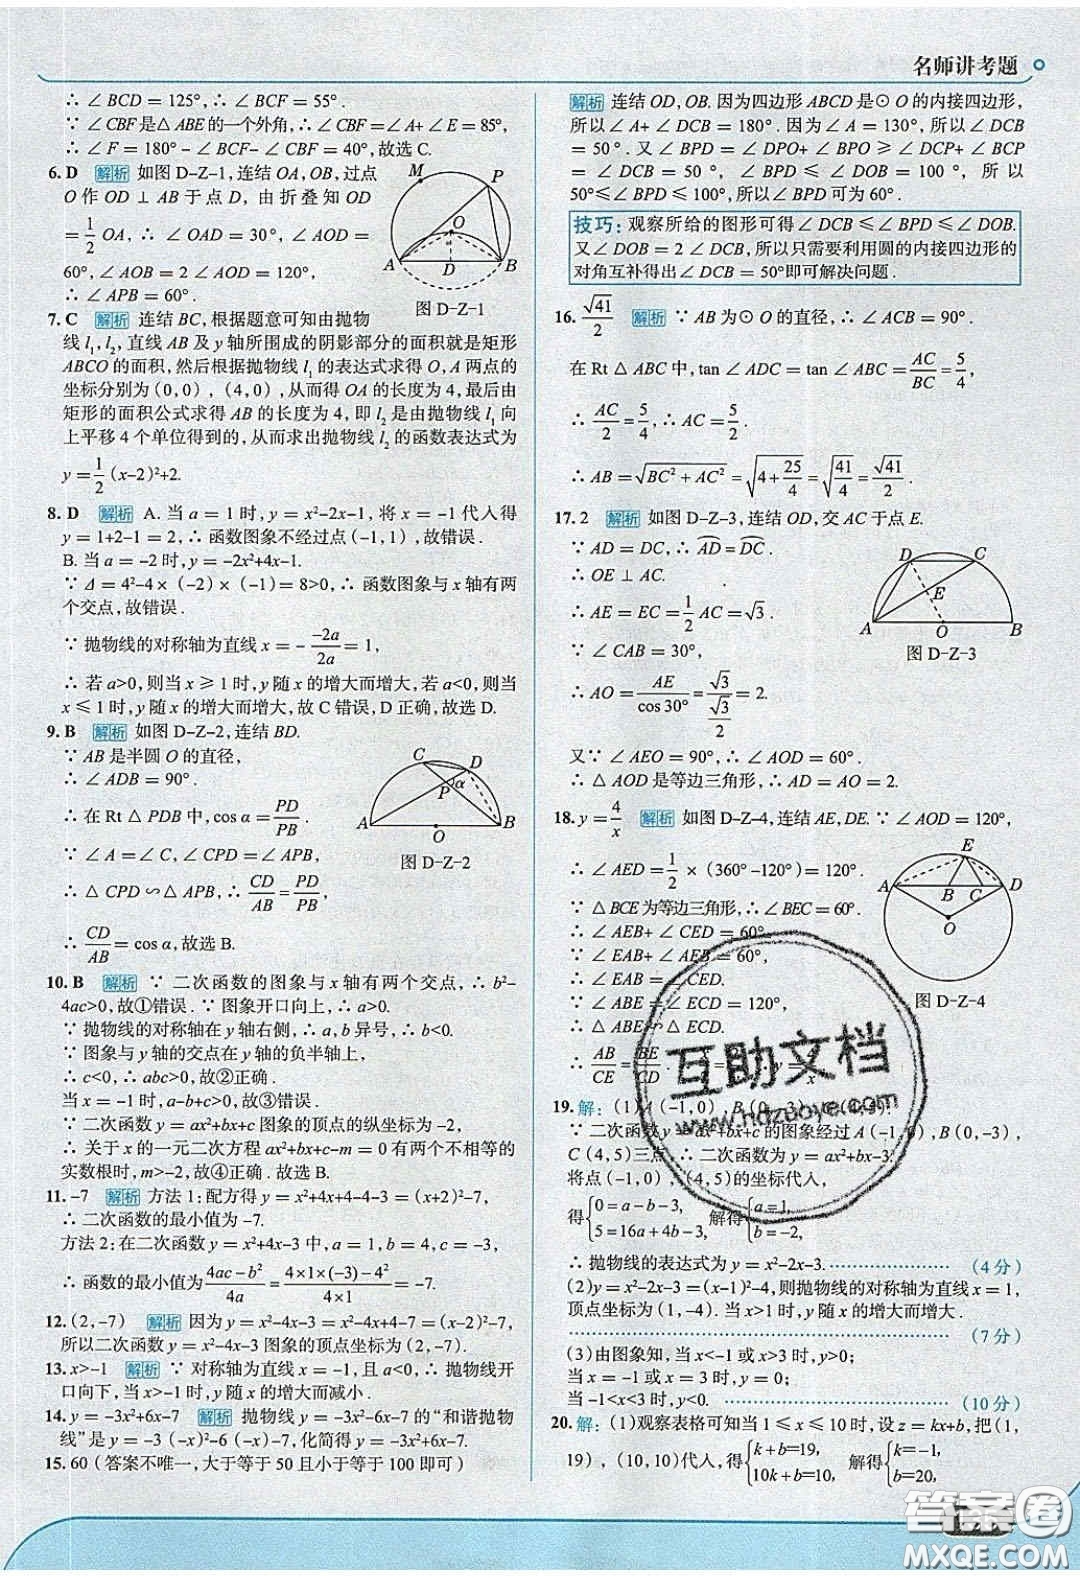 名师讲考题
∴ ∠BCD = 125°, ∴ ∠BCF = 55°.
∵ ∠CBF是△ABE的一个外角, ∴ ∠CBF = ∠A+∠E = 85°,
∴ ∠F = 180° - ∠BCF - ∠CBF = 40°, 故选 C.
6. D 解析 如图 D-Z-1, 连结 OA, OB, 过点
O 作 OD ⊥ AB 于点 D, 由折叠知 OD
= 1/2 OA, ∴ ∠OAD = 30°, ∠AOD =
60°, ∠AOB = 2∠AOD = 120°,
∴ ∠APB = 60°.
M P O A D B
图 D-Z-1
7. C 解析 连结 BC, 根据题意可知由抛物
线 l₁, l₂, 直线 AB 及 y 轴所围成的阴影部分的面积就是矩形
ABCO 的面积, 然后根据抛物线 l₁ 的表达式求得 O, A 两点的
坐标分别为 (0,0), (4,0), 从而得 OA 的长度为 4, 最后由
矩形的面积公式求得 AB 的长度为 4, 即 l₂ 是由抛物线 l₁ 向
上平移 4 个单位得到的, 从而求出抛物线 l₂ 的函数表达式为
y = 1/2 (x-2)²+2.
8. D 解析 A. 当 a = 1 时, y = x²-2x-1, 将 x = -1 代入得
y = 1+2-1 = 2, ∴ 函数图象不经过点 (-1,1), 故错误.
B. 当 a = -2 时, y = -2x²+4x-1.
∵ Δ = 4²-4×(-2)×(-1) = 8>0, ∴ 函数图象与 x 轴有两
个交点, 故错误.
∵ 抛物线的对称轴为直线 x = - -2a/2a = 1,
∴ 若 a>0, 则当 x ≥ 1 时, y 随 x 的增大而增大, 若 a<0, 则当
x ≤ 1 时, y 随 x 的增大而增大, 故 C 错误, D 正确, 故选 D.
9. B 解析 如图 D-Z-2, 连结 BD.
∵ AB 是半圆 O 的直径,
∴ ∠ADB = 90°.
∴ 在 Rt△PDB 中, cos α = PD/PB.
∵ ∠A = ∠C, ∠CPD = ∠APB,
∴ △CPD ∽ △APB, ∴ CD/AB = PD/PB,
∴ CD/AB = cos α, 故选 B.
C D P α A O B
图 D-Z-2
10. B 解析 ∵ 二次函数的图象与 x 轴有两个交点, ∴ b²-
4ac>0, 故①错误. ∵ 图象开口向上, ∴ a>0.
∵ 抛物线的对称轴在 y 轴右侧, ∴ a, b 异号, ∴ b<0.
∵ 图象与 y 轴的交点在 y 轴的负半轴上,
∴ c<0, ∴ abc>0, 故②正确.
当 x = -1 时, a-b+c>0, 故③错误.
∵ 二次函数 y = ax²+bx+c 图象的顶点的纵坐标为 -2,
∴ 关于 x 的一元二次方程 ax²+bx+c-m = 0 有两个不相等的
实数根时, m>-2, 故④正确. 故选 B.
11. -7 解析 方法 1: 配方得 y = x²+4x+4-4-3 = (x+2)²-7,
∴ 二次函数的最小值为 -7.
方法 2: 在二次函数 y = x²+4x-3 中, a = 1, b = 4, c = -3,
∴ 函数的最小值为 (4ac-b²)/4a = (4×1×(-3)-4²)/(4×1) = -7.
12. (2,-7) 解析 因为 y = x²-4x-3 = x²-4x+4-7 = (x-2)²-7,
所以二次函数 y = x²-4x-3 图象的顶点坐标为 (2,-7).
13. x>-1 解析 ∵ 对称轴为直线 x = -1, 且 a<0, ∴ 抛物线开
口向下, 当 x>-1 时, y 随 x 的增大而减小.
14. y = -3x²+6x-7 解析 抛物线 y = -3x²-6x-7 的“和谐抛物
线”是 y = -3(-x)²-6(-x)-7, 化简得 y = -3x²+6x-7.
15. 60 (答案不唯一, 大于等于 50 且小于等于 100 即可)
解析 连结 OD, OB. 因为四边形 ABCD 是⊙O 的内接四边形,
所以 ∠A+∠DCB = 180°. 因为 ∠A = 130°, 所以 ∠DCB
= 50°. 又 ∠BPD = ∠DPO+∠BPO ≥ ∠DCP+∠BCP
= ∠DCB = 50°, ∠BPD ≤ ∠DOB = 100°, 所以
50° ≤ ∠BPD ≤ 100°, 所以 ∠BPD 可为 60°.
技巧: 观察所给的图形可得 ∠DCB ≤ ∠BPD ≤ ∠DOB.
又 ∠DOB = 2∠DCB, 所以只需要利用圆的内接四边形的
对角互补得出 ∠DCB = 50° 即可解决问题.
16. √41/2 解析 ∵ AB 为⊙O 的直径, ∴ ∠ACB = 90°.
在 Rt△ABC 中, tan∠ADC = tan∠ABC = AC/BC = 5/4,
∴ AC/2 = 5/4, ∴ AC = 5/2.
∴ AB = √(BC²+AC²) = √(4+25/4) = √(41/4) = √41/2.
17. 2 解析 如图 D-Z-3, 连结 OD, 交 AC 于点 E.
∵ AD = DC, ∴ AD⌒ = DC⌒.
∴ OE ⊥ AC.
∴ AE = EC = 1/2 AC = √3.
∵ ∠CAB = 30°,
∴ AO = AE/cos 30° = √3/(√3/2) = 2.
又∵ ∠AEO = 90°, ∴ ∠AOD = 60°.
∴ △AOD 是等边三角形, ∴ AD = AO = 2.
D C E A O B
图 D-Z-3
18. y = 4/x 解析 如图 D-Z-4, 连结 AE, DE. ∵ ∠AOD = 120°,
∴ ∠AED = 1/2 × (360°-120°) = 120°.
∵ △BCE 为等边三角形, ∴ ∠BEC = 60°.
∴ ∠AEB+∠CED = 60°.
∵ ∠EAB+∠AEB = 60°,
∴ ∠EAB = ∠CED.
∵ ∠ABE = ∠ECD = 120°,
∴ △ABE ∽ △ECD.
∴ AB/CE = BE/CD
E A B C D O
图 D-Z-4
19. 解: (1) A(-1,0), B(0,-3)
∵ 二次函数 y = ax²+bx+c 的图象经过 A(-1,0), B(0,-3),
C(4,5) 三点, ∴ 二次函数为 y = ax²+bx-3.
将点 (-1,0), (4,5) 的坐标代入,
得 {0 = a-b-3, 5 = 16a+4b-3, 解得 {a = 1, b = -2,
∴ 抛物线的表达式为 y = x²-2x-3. (4 分)
(2) y = x²-2x-3 = (x-1)²-4, 则抛物线的对称轴为直线 x = 1,
顶点坐标为 (1,-4). 当 x>1 时, y 随 x 的增大而增大.
(7 分)
(3) 由图象知, 当 x<-1 或 x>3 时, y>0;
当 x = -1 或 x = 3 时, y = 0;
当 -1<x<3 时, y<0. (10 分)
20. 解: (1) 观察表格可知当 1 ≤ x ≤ 10 时, 设 z = kx+b, 把 (1,
19), (10,10) 代入, 得 {k+b=19, 10k+b=10, 解得 {k=-1, b=20,
互助文档
www.hdzuoye.com
答案圈
MXQE.COM